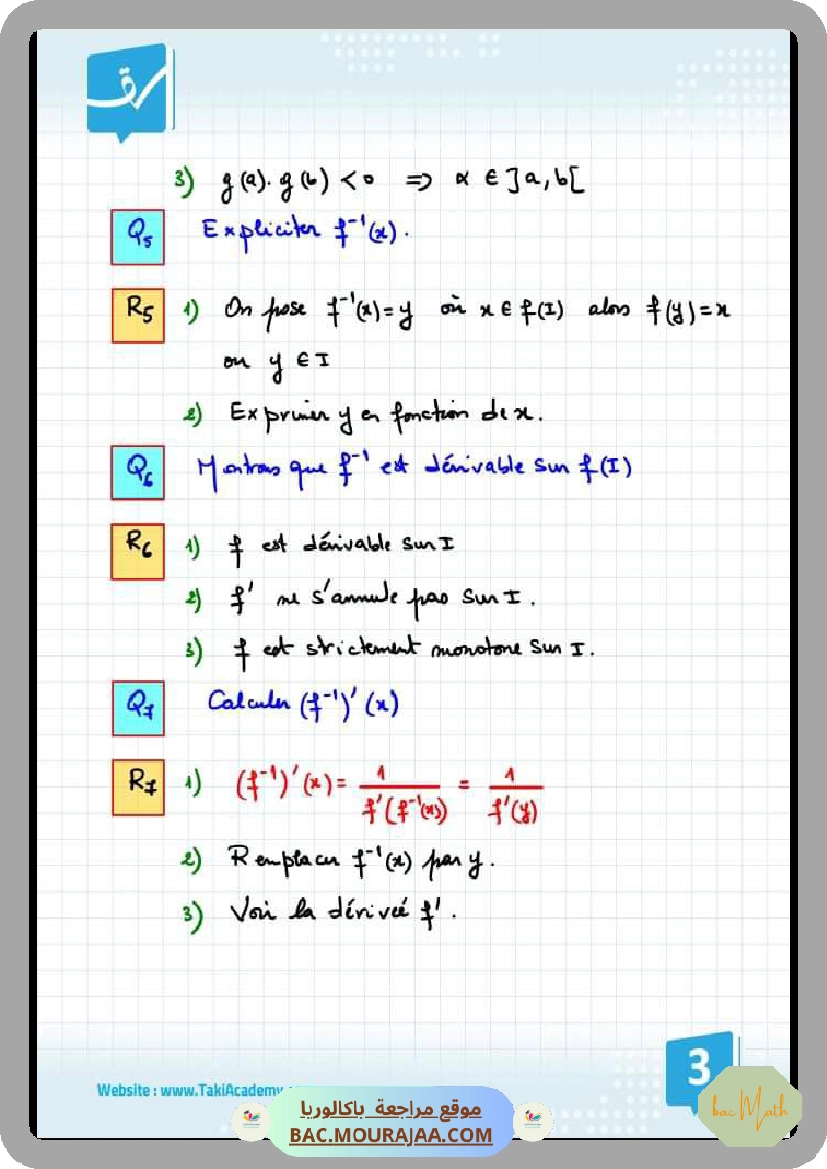 3) g(a). g(b) < 0 ⇒ α ∈ ]a, b[
Q5 Expliciter f⁻¹(x).
R5 1) On pose f⁻¹(x) = y où x ∈ f(I) alors f(y) = x
ou y ∈ I
2) Exprimer y en fonction de x.
Q6 Montrons que f⁻¹ est dérivable sur f(I)
R6 1) f est dérivable sur I
2) f' ne s'annule pas sur I.
3) f est strictement monotone sur I.
Q7 Calculer (f⁻¹)'(x)
R7 1) (f⁻¹)'(x) = 1 / f'(f⁻¹(x)) = 1 / f'(y)
2) Remplacer f⁻¹(x) par y.
3) Voir la dérivée f'.
3
Website : www.TakiAcademy
bac Math
موقع مراجعة باكالوريا
BAC.MOURAJAA.COM